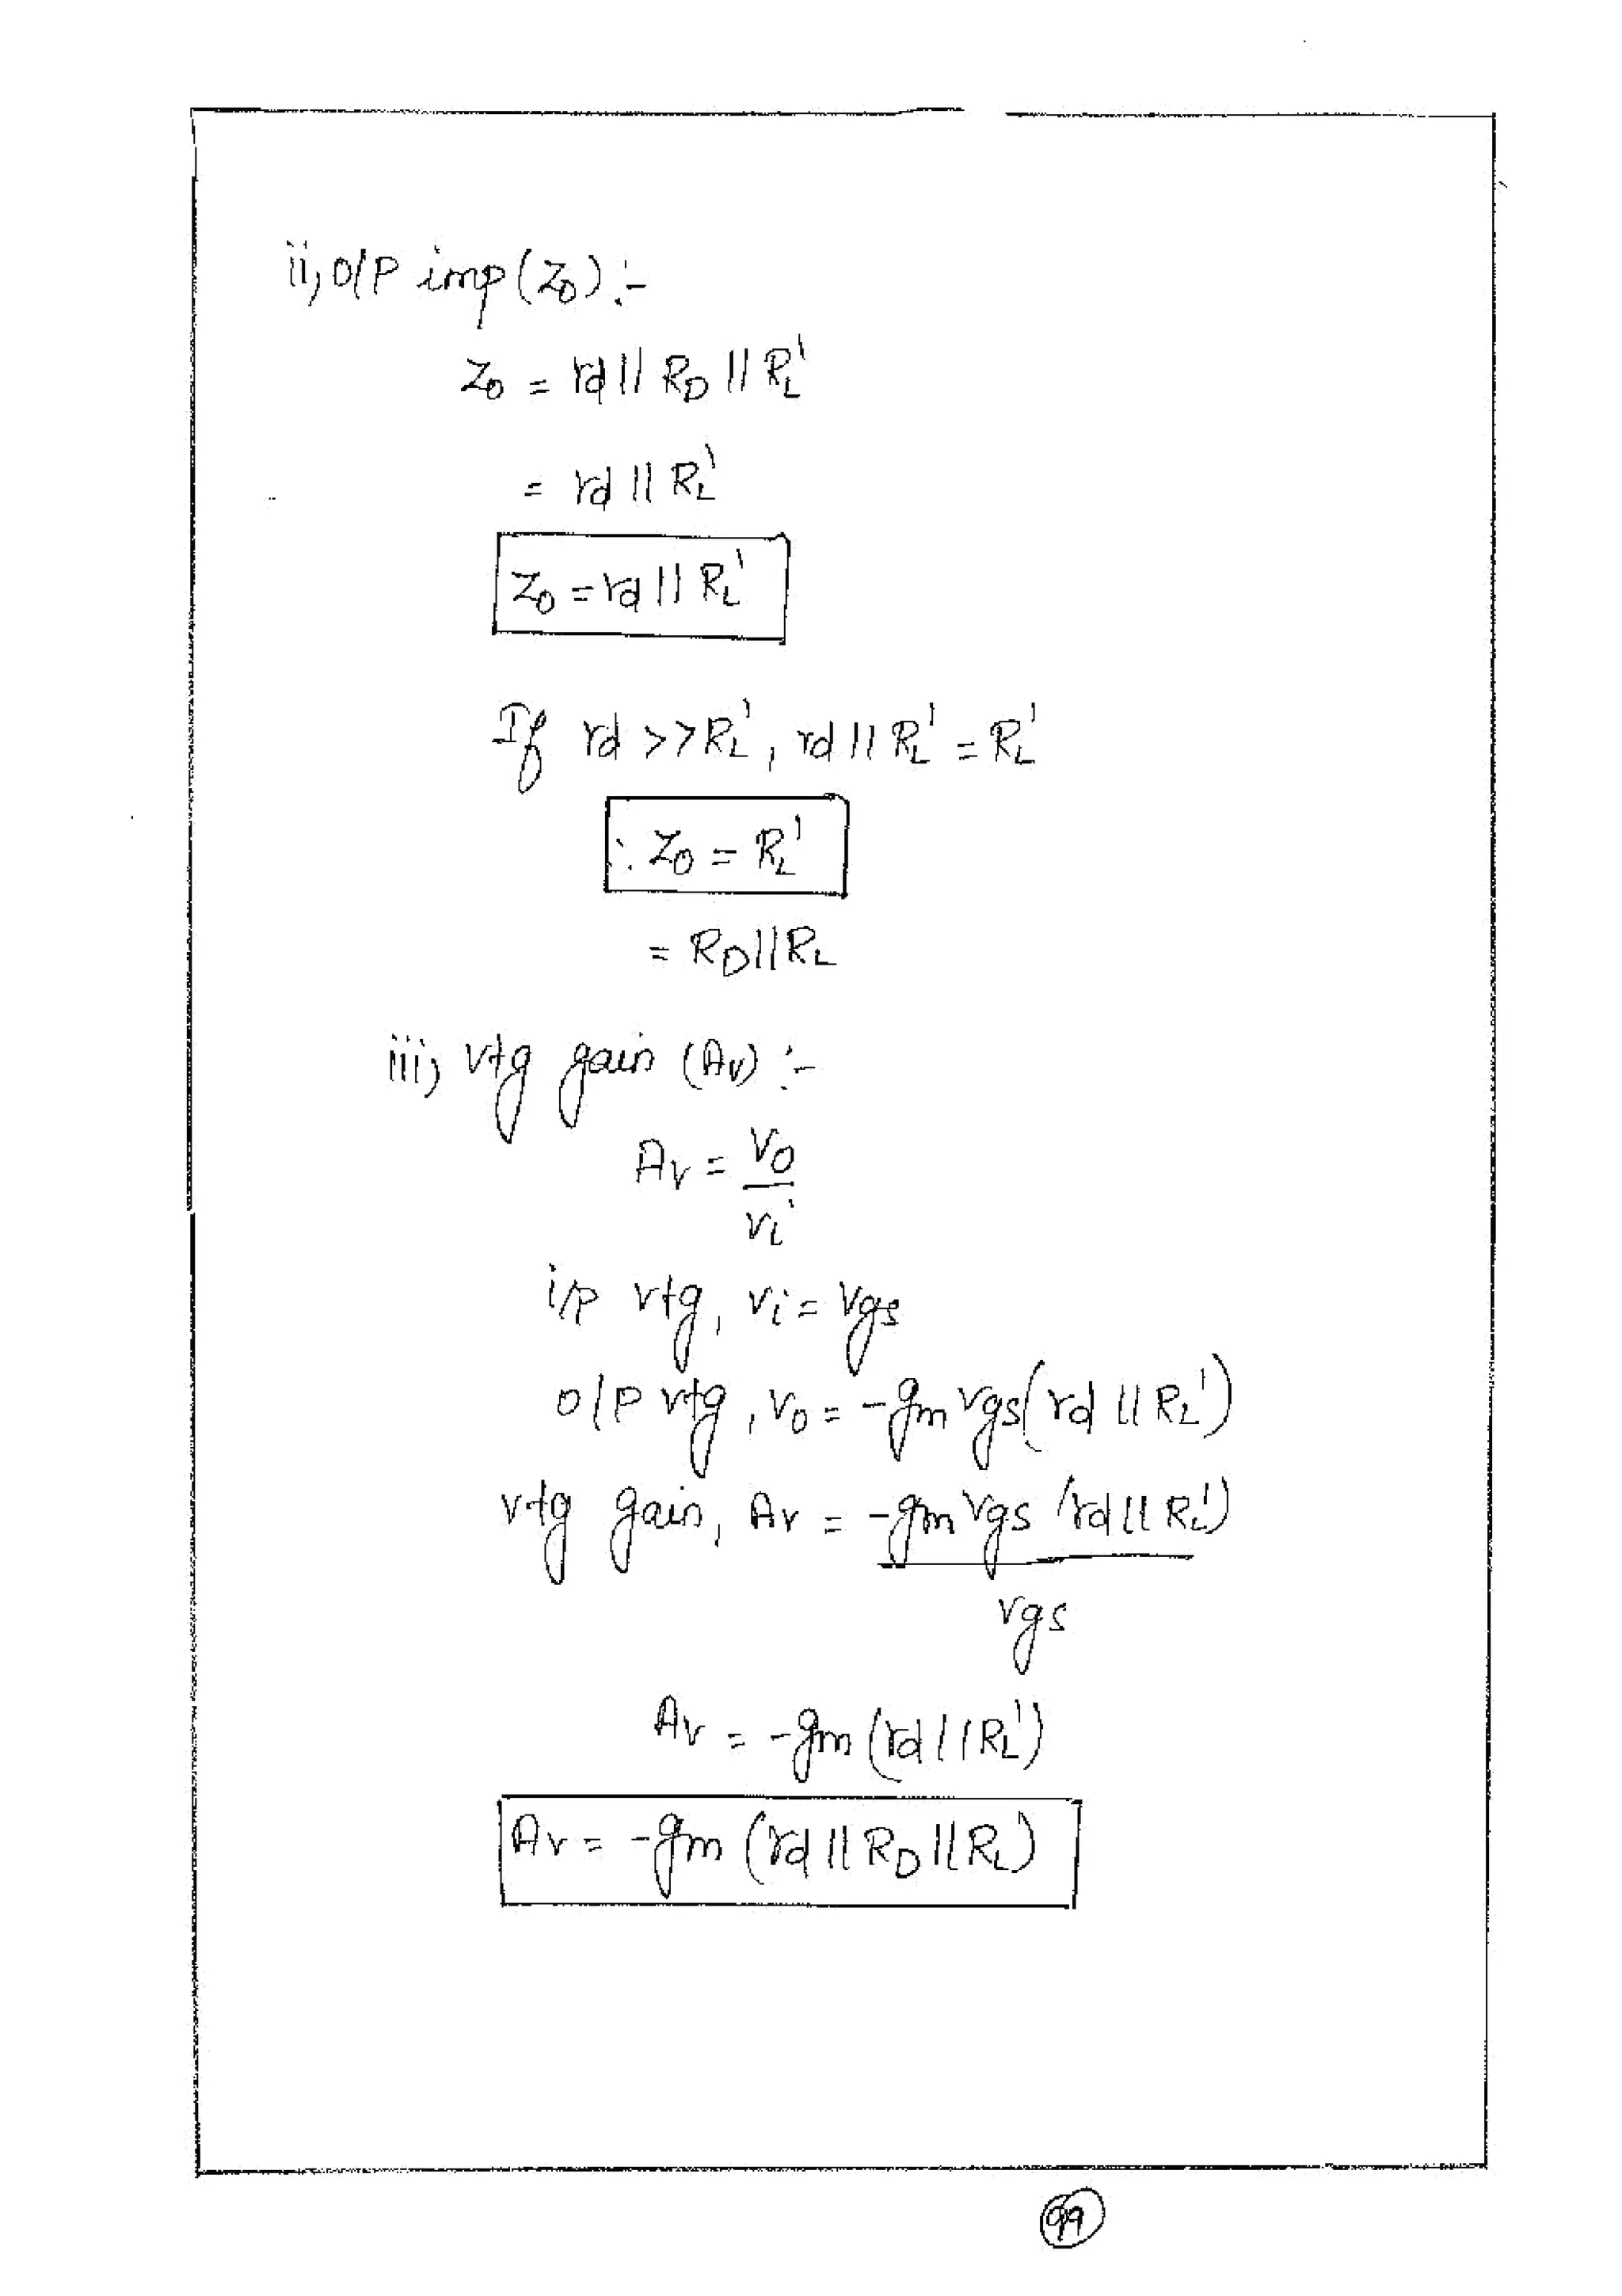 ii, o/p imp (Zo) :-
Zo = rd || RD || RL'
= rd || RL'
Zo = rd || RL'
If rd >> RL', rd || RL' = RL'
∴ Zo = RL'
= RD || RL
iii, vtg gain (Av) :-
Av = Vo
Vi
i/p vtg, Vi = Vgs
o/p vtg, Vo = -gm Vgs (rd || RL')
vtg gain, Av = -gm Vgs (rd || RL')
Vgs
Av = -gm (rd || RL')
Av = -gm (rd || RD || RL)
99